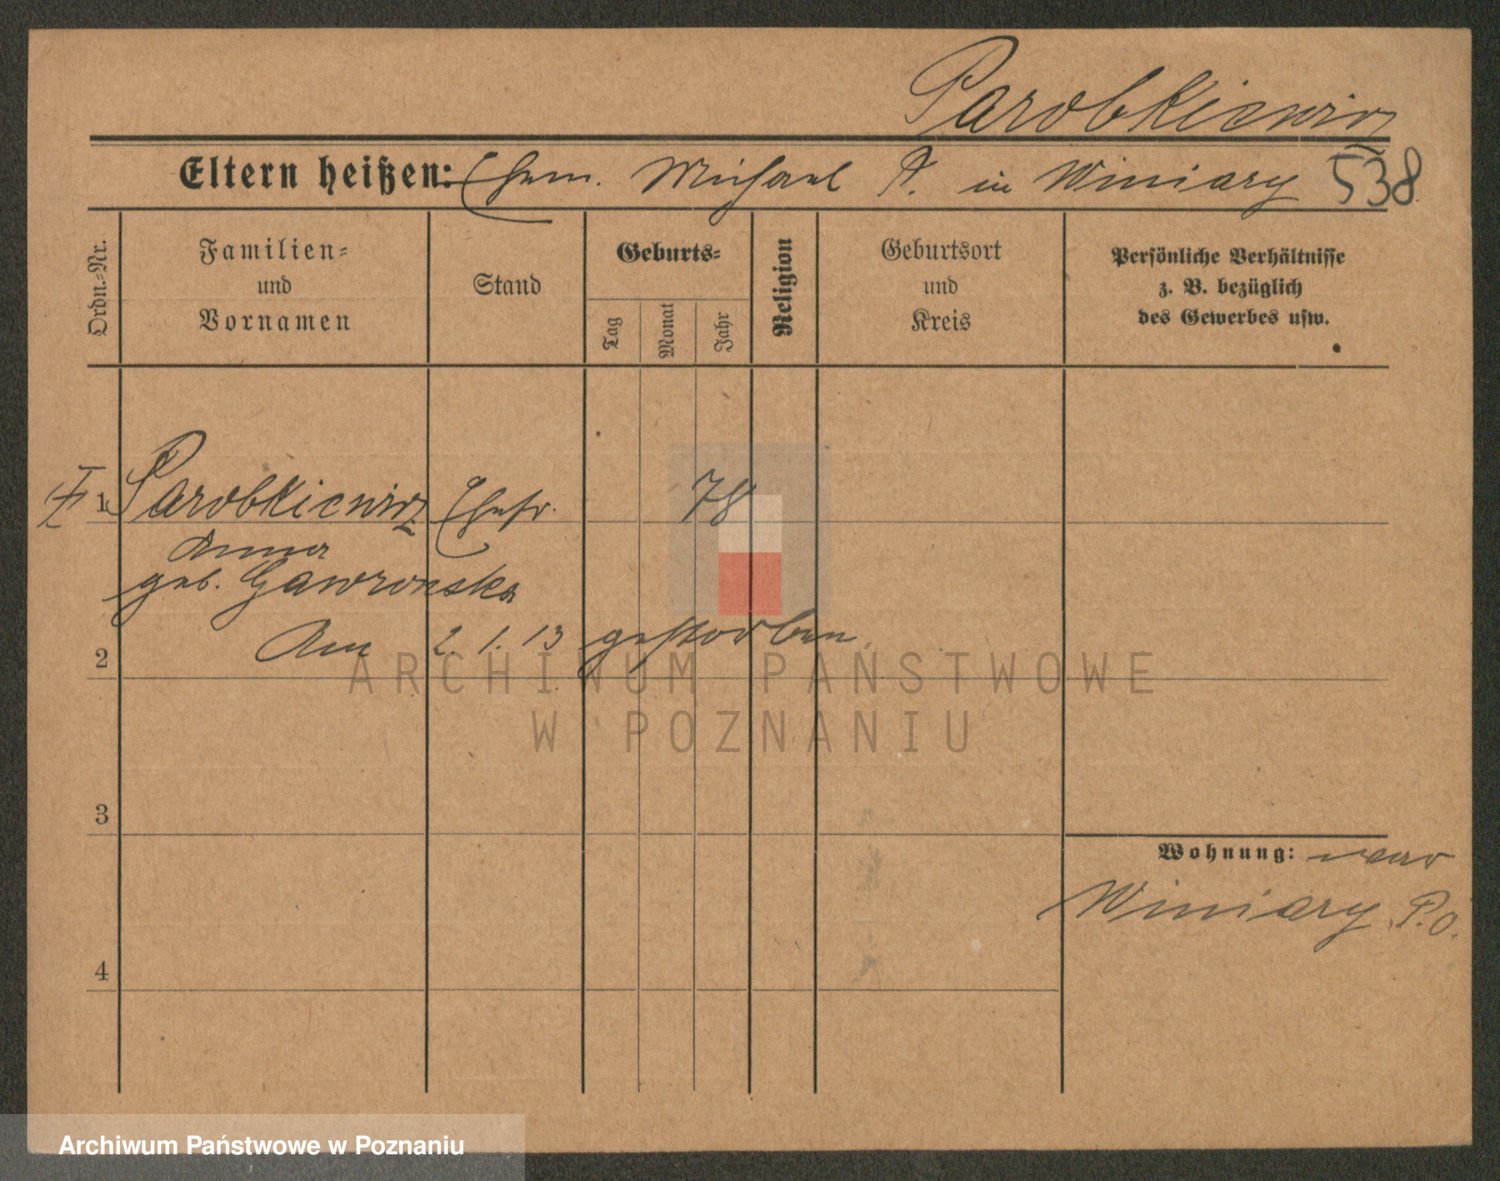 Parobkiewicz
Eltern heißen: Ehem. Michael P. in Winiary 538
Ordn.-Nr.
Familien-
und
Vornamen
Stand
Geburts-
Tag
Monat
Jahr
Religion
Geburtsort
und
Kreis
Persönliche Verhältnisse
z. B. bezüglich
des Gewerbes usw.
1 Parobkiewicz Ehefr. 78
Anna
geb. Gawronska
Am 2. 1. 13 gestorben
2
ARCHIWUM PAŃSTWOWE
W POZNANIU
3
Wohnung: war
Winiary P.O.
4
Archiwum Państwowe w Poznaniu